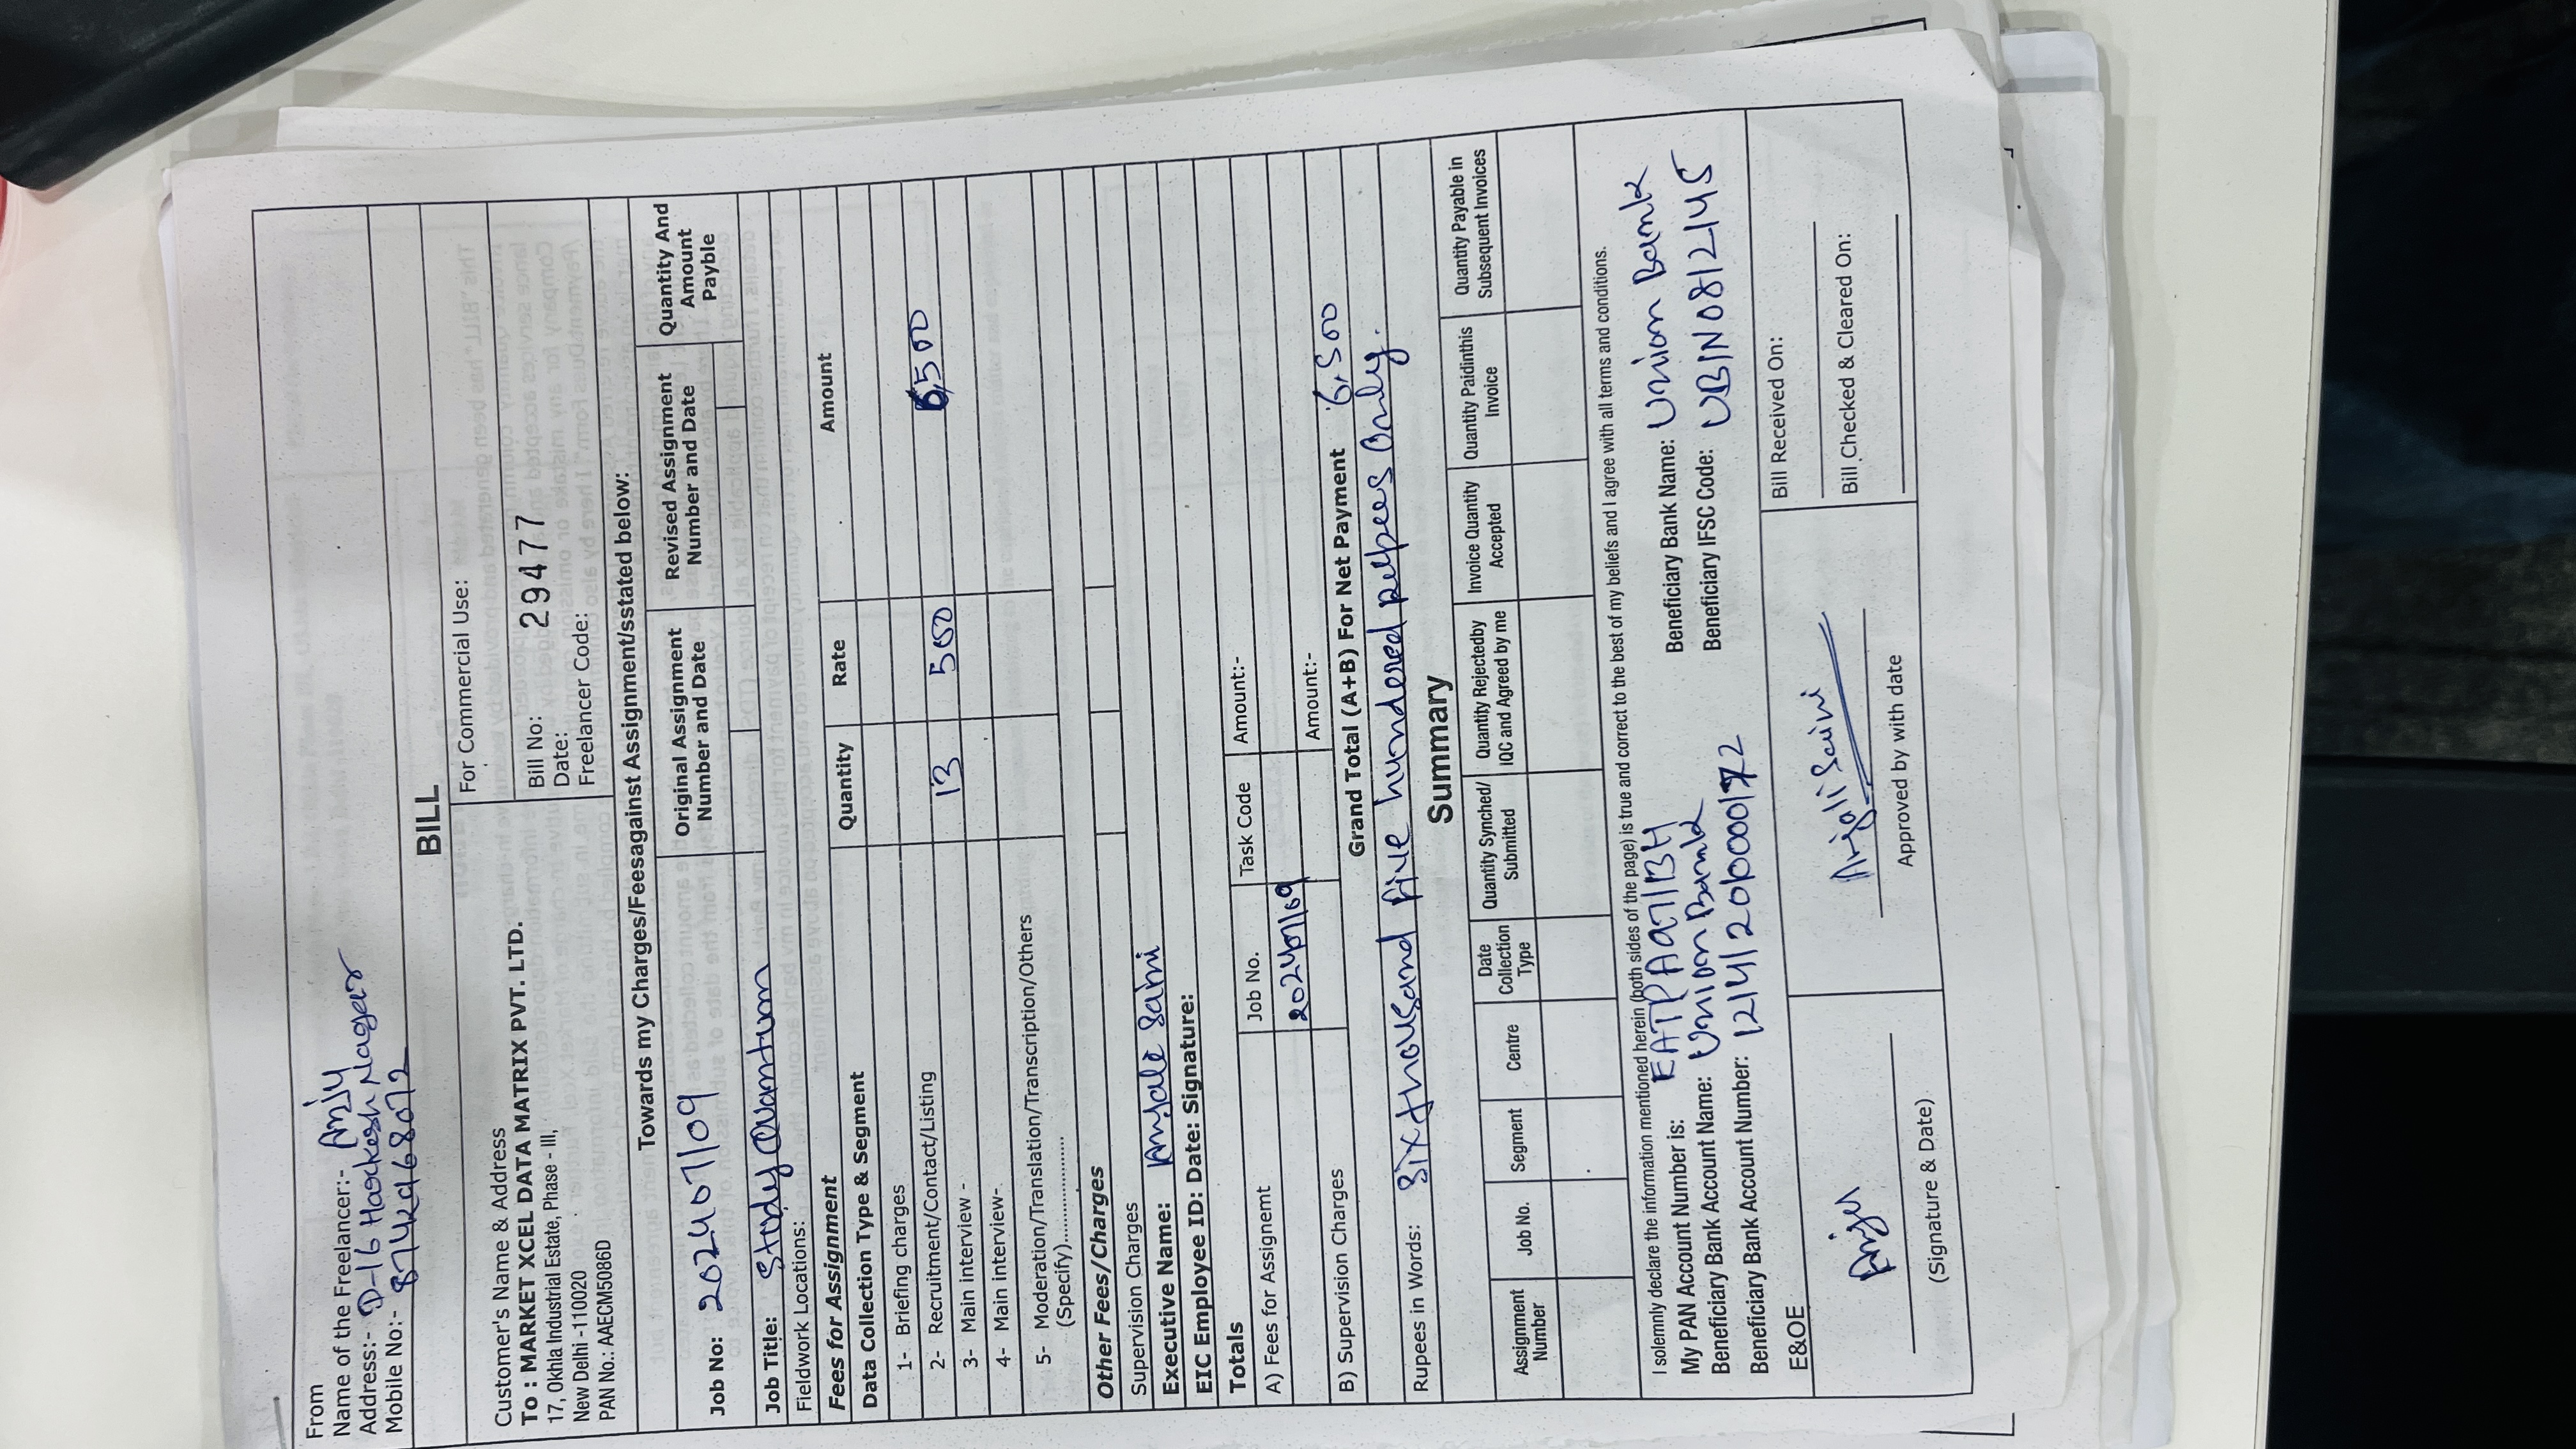 From
Name of the Freelancer:- Anju
Address:- D-16 Harkesh Nagar
Mobile No:-
BILL
Customer's Name & Address
To : MARKET XCEL DATA MATRIX PVT. LTD.
17, Okhla Industrial Estate, Phase - III,
New Delhi -110020
PAN No.: AAECM5086D
For Commercial Use:
Bill No: 29477
Date:
Freelancer Code:
Towards my Charges/Feesagainst Assignment/sstated below:
Job No: 202407109
Original Assignment Number and Date
Revised Assignment Number and Date
Quantity And Amount Payble
Job Title: Study Quantum
Fieldwork Locations:
Fees for Assignment
Data Collection Type & Segment Quantity Rate Amount
1- Briefing charges
2- Recruitment/Contact/Listing 13 500 6,500
3- Main interview -
4- Main interview-
5- Moderation/Translation/Transcription/Others
(Specify)......................
Other Fees/Charges
Supervision Charges
Executive Name: Saini
EIC Employee ID: Date: Signature:
Totals Job No. Task Code Amount:-
A) Fees for Assignment 202407109
Amount:-
B) Supervision Charges
Grand Total (A+B) For Net Payment 6,500
Rupees in Words: Six thousand five hundered Rupees Only.
Summary
Assignment Number Job No. Segment Centre Date Collection Type Quantity Synched/ Submitted Quantity Rejectedby IQC and Agreed by me Invoice Quantity Accepted Quantity Paidinthis Invoice Quantity Payable in Subsequent Invoices
I solemnly declare the information mentioned herein (both sides of the page) is true and correct to the best of my beliefs and I agree with all terms and conditions.
My PAN Account Number is:
Beneficiary Bank Account Name: Union Bank
Beneficiary Bank Account Number:
Beneficiary Bank Name: Union Bank
Beneficiary IFSC Code: UBIN0812145
E&OE
Anju
(Signature & Date)
Anjali Saini
Approved with date
Bill Received On:
Bill Checked & Cleared On: